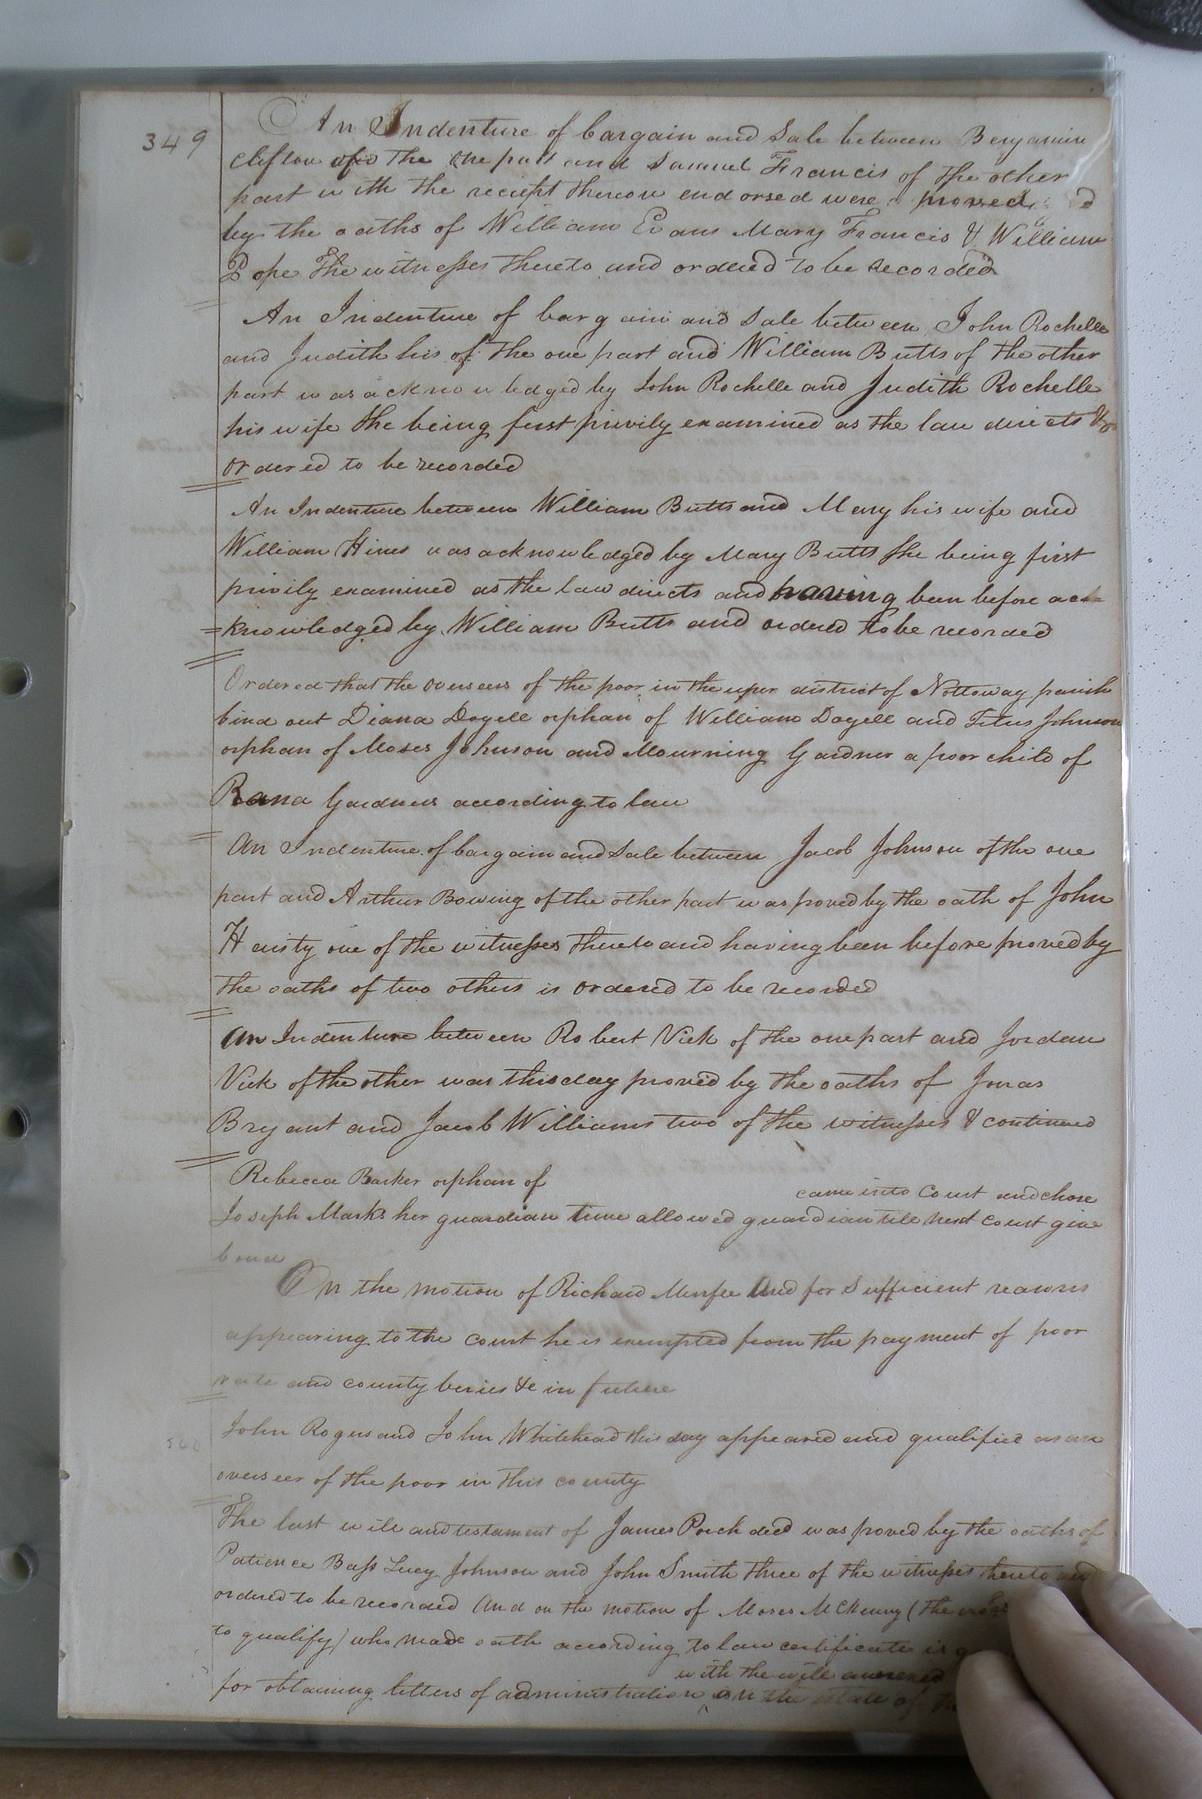 349
An Indenture of bargain and Sale between Benjamin
Clifton of the One part and Samuel Francis of the other
part with the reciept thereon endorsed were proved
by the oaths of William Evans Mary Francis & William
Pope The witnesses thereto and ordered to be recorded
An Indenture of bargain and Sale between John Rochelle
and Judith his of the one part and William Butts of the other
part was acknowledged by John Rochelle and Judith Rochelle
his wife the being first privily examined as the law directs &
ordered to be recorded
An Indenture between William Butts and Mary his wife and
William Hines was acknowledged by Mary Butts she being first
privily examined as the law directs and having been before ack=
=knowledged by William Butts and ordered to be recorded
Ordered that the overseers of the poor in the uper district of Nottoway parish
bind out Diana Doyell orphan of William Doyell and Titus Johnson
orphan of Moses Johnson and Mourning Gardner a poor child of
Rana Gardners according to law
An Indenture of bargain and Sale between Jacob Johnson of the one
part and Arthur Bowing of the other part was proved by the oath of John
Hasty one of the witnesses thereto and having been before proved by
the oaths of two others is ordered to be recorded
An Indenture between Robert Vick of the one part and Jordan
Vick of the other was this day proved by the oaths of Jonas
Bryant and Jacob Williams two of the witnesses & continued
Rebecca Barker orphan of came into Court and chose
Joseph Marks her guardian time allowed guardian till next Court give
bond
On the motion of Richard Murfee And for Sufficient reasons
appearing to the court he is exempted from the payment of poor
rate and county levies &c in future
John Rogers and John Whitehead this day appeared and qualified as an
overseer of the poor in this county
The last will and testament of James Porch decd was proved by the oaths of
Patience Bass Lucy Johnson and John Smith three of the witnesses thereto and
ordered to be recorded And on the motion of Moses McKenny (the
to qualify) who made oath according to law certificate is
with the will annexed
for obtaining letters of administration on the estate of